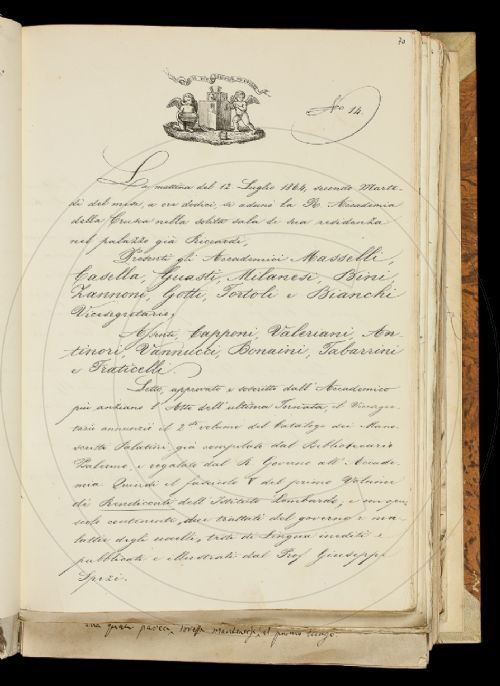 70
No. 14.
La mattina del 12 Luglio 1864, secondo Marte-
dì del mese, a ore dodici, si adunò la R. Accademia
della Crusca nella solita sala di sua residenza
nel palazzo già Riccardi,
Presenti gli Accademici Masselli,
Casella, Guasti, Milanesi, Bini,
Zannoni, Gotti, Tortoli e Bianchi
Vicesegretario;
Assenti, Capponi, Valeriani, An-
tinori, Vannucci, Bonaini, Tabarrini
e Fraticelli.
Letto, approvato e soscritto dall'Accademico
più anziano l'Atto dell'ultima Tornata, il Vicesegre-
tario annunziò il 2do volume del Catalogo dei Mano-
scritti Palatini già compilato dal Bibliotecario
Palermo, e regalato dal R. Governo all'Accade-
mia. Quindi il fascicolo del primo Volume
di Rendiconti dell'Istituto Lombardo, e un opu-
scolo contenente, due trattati del governo e ma-
lattie degli uccelli, testi di lingua inediti e
pubblicati e illustrati dal Prof Giuseppe
Spezi.